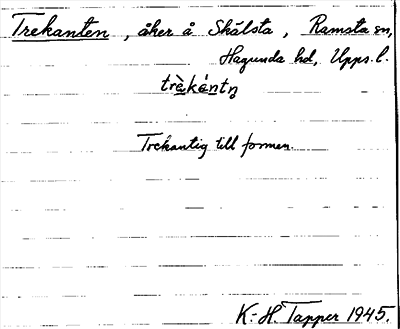 Trekanten, åker å Skälsta, Ramsta sn,
Hagunda hd, Upps. l.
trè̀kántn̥
Trekantig till formen.
K.-H. Tapper 1945.